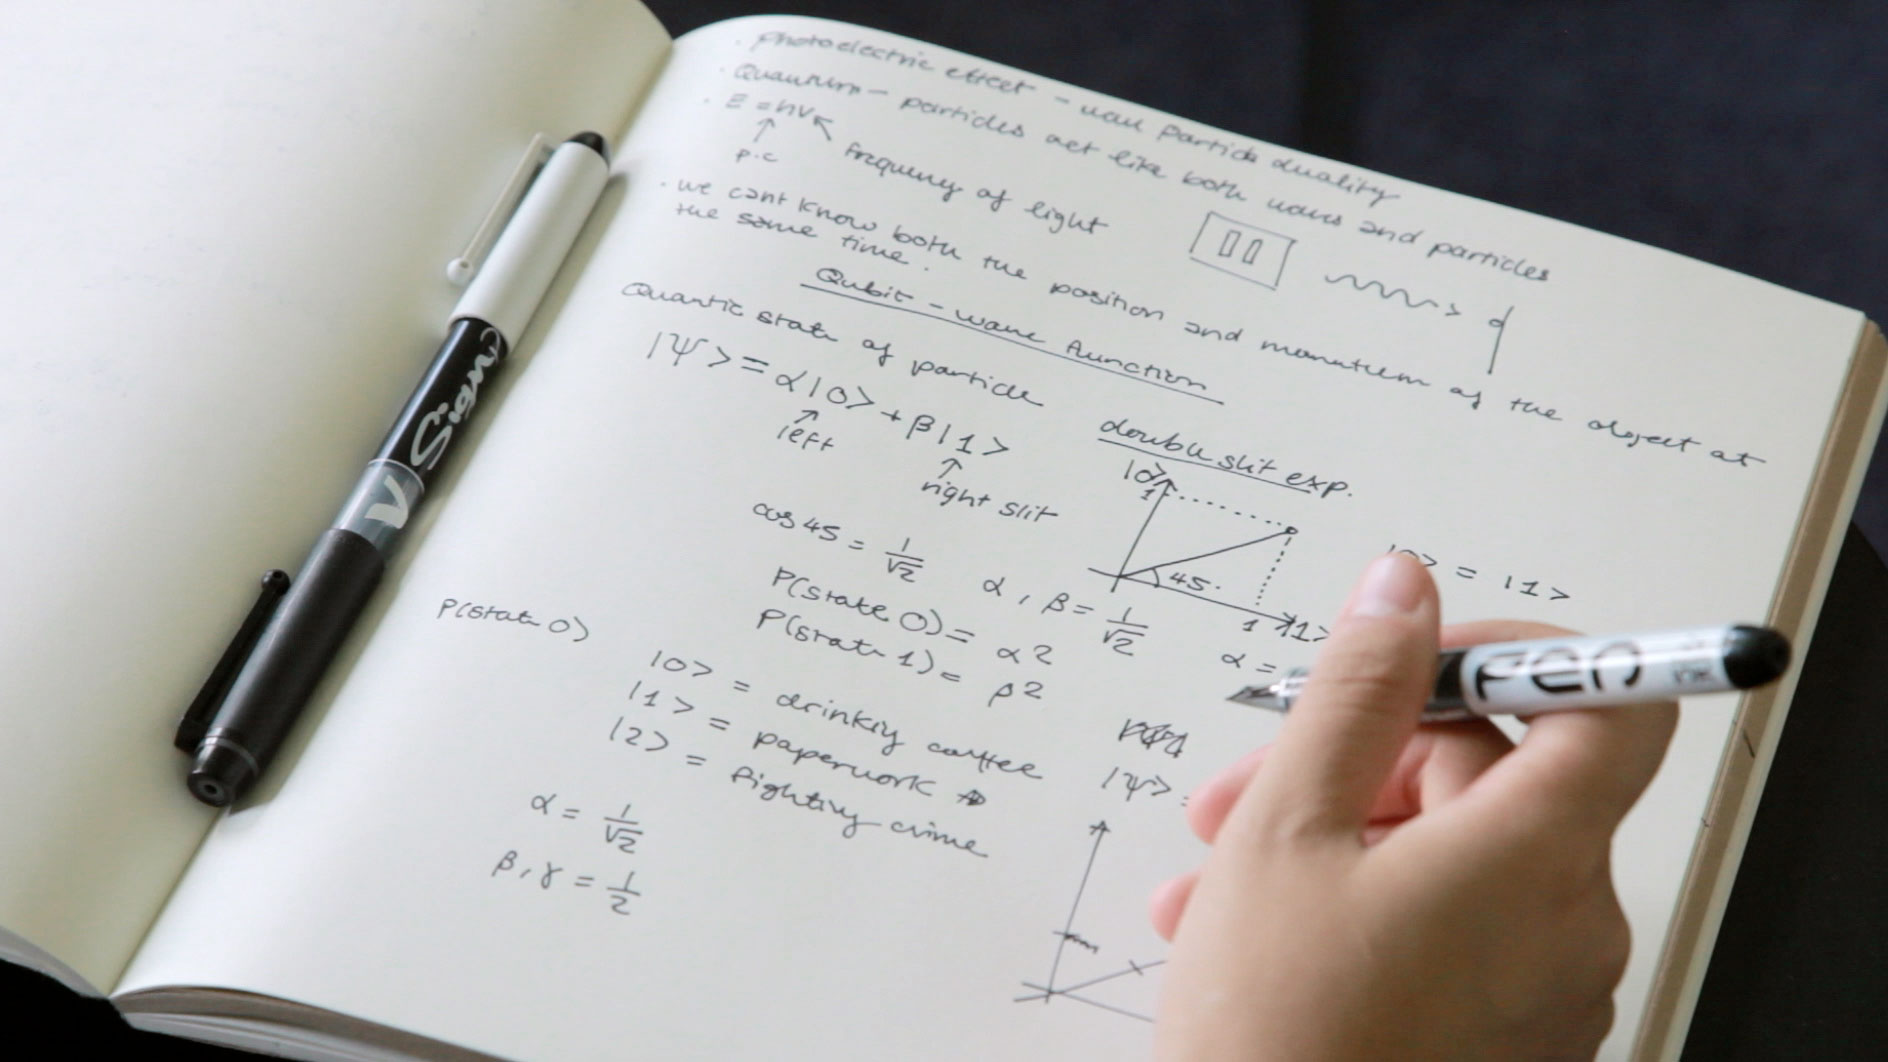 · photoelectric effect - wave particle duality
· Quantum - particles act like both waves and particles
· E = hν
p.c
frequency of light
· we cant know both the position and momentum of the object at
the same time.
Qubit - wave function
Quantic state of particle
|ψ> = α|0> + β|1>
left
right slit
double slit exp.
|0>
1
45°
1
|1>
|0> = |1>
α =
cos 45 = 1/√2
α, β = 1/√2
P(state 0) = α2
P(state 1) = β2
P(state 0)
|0> = drinking coffee
|1> = paperwork
|2> = fighting crime
|ψ> =
α = 1/√2
β, γ = 1/2
V Sign
Pen